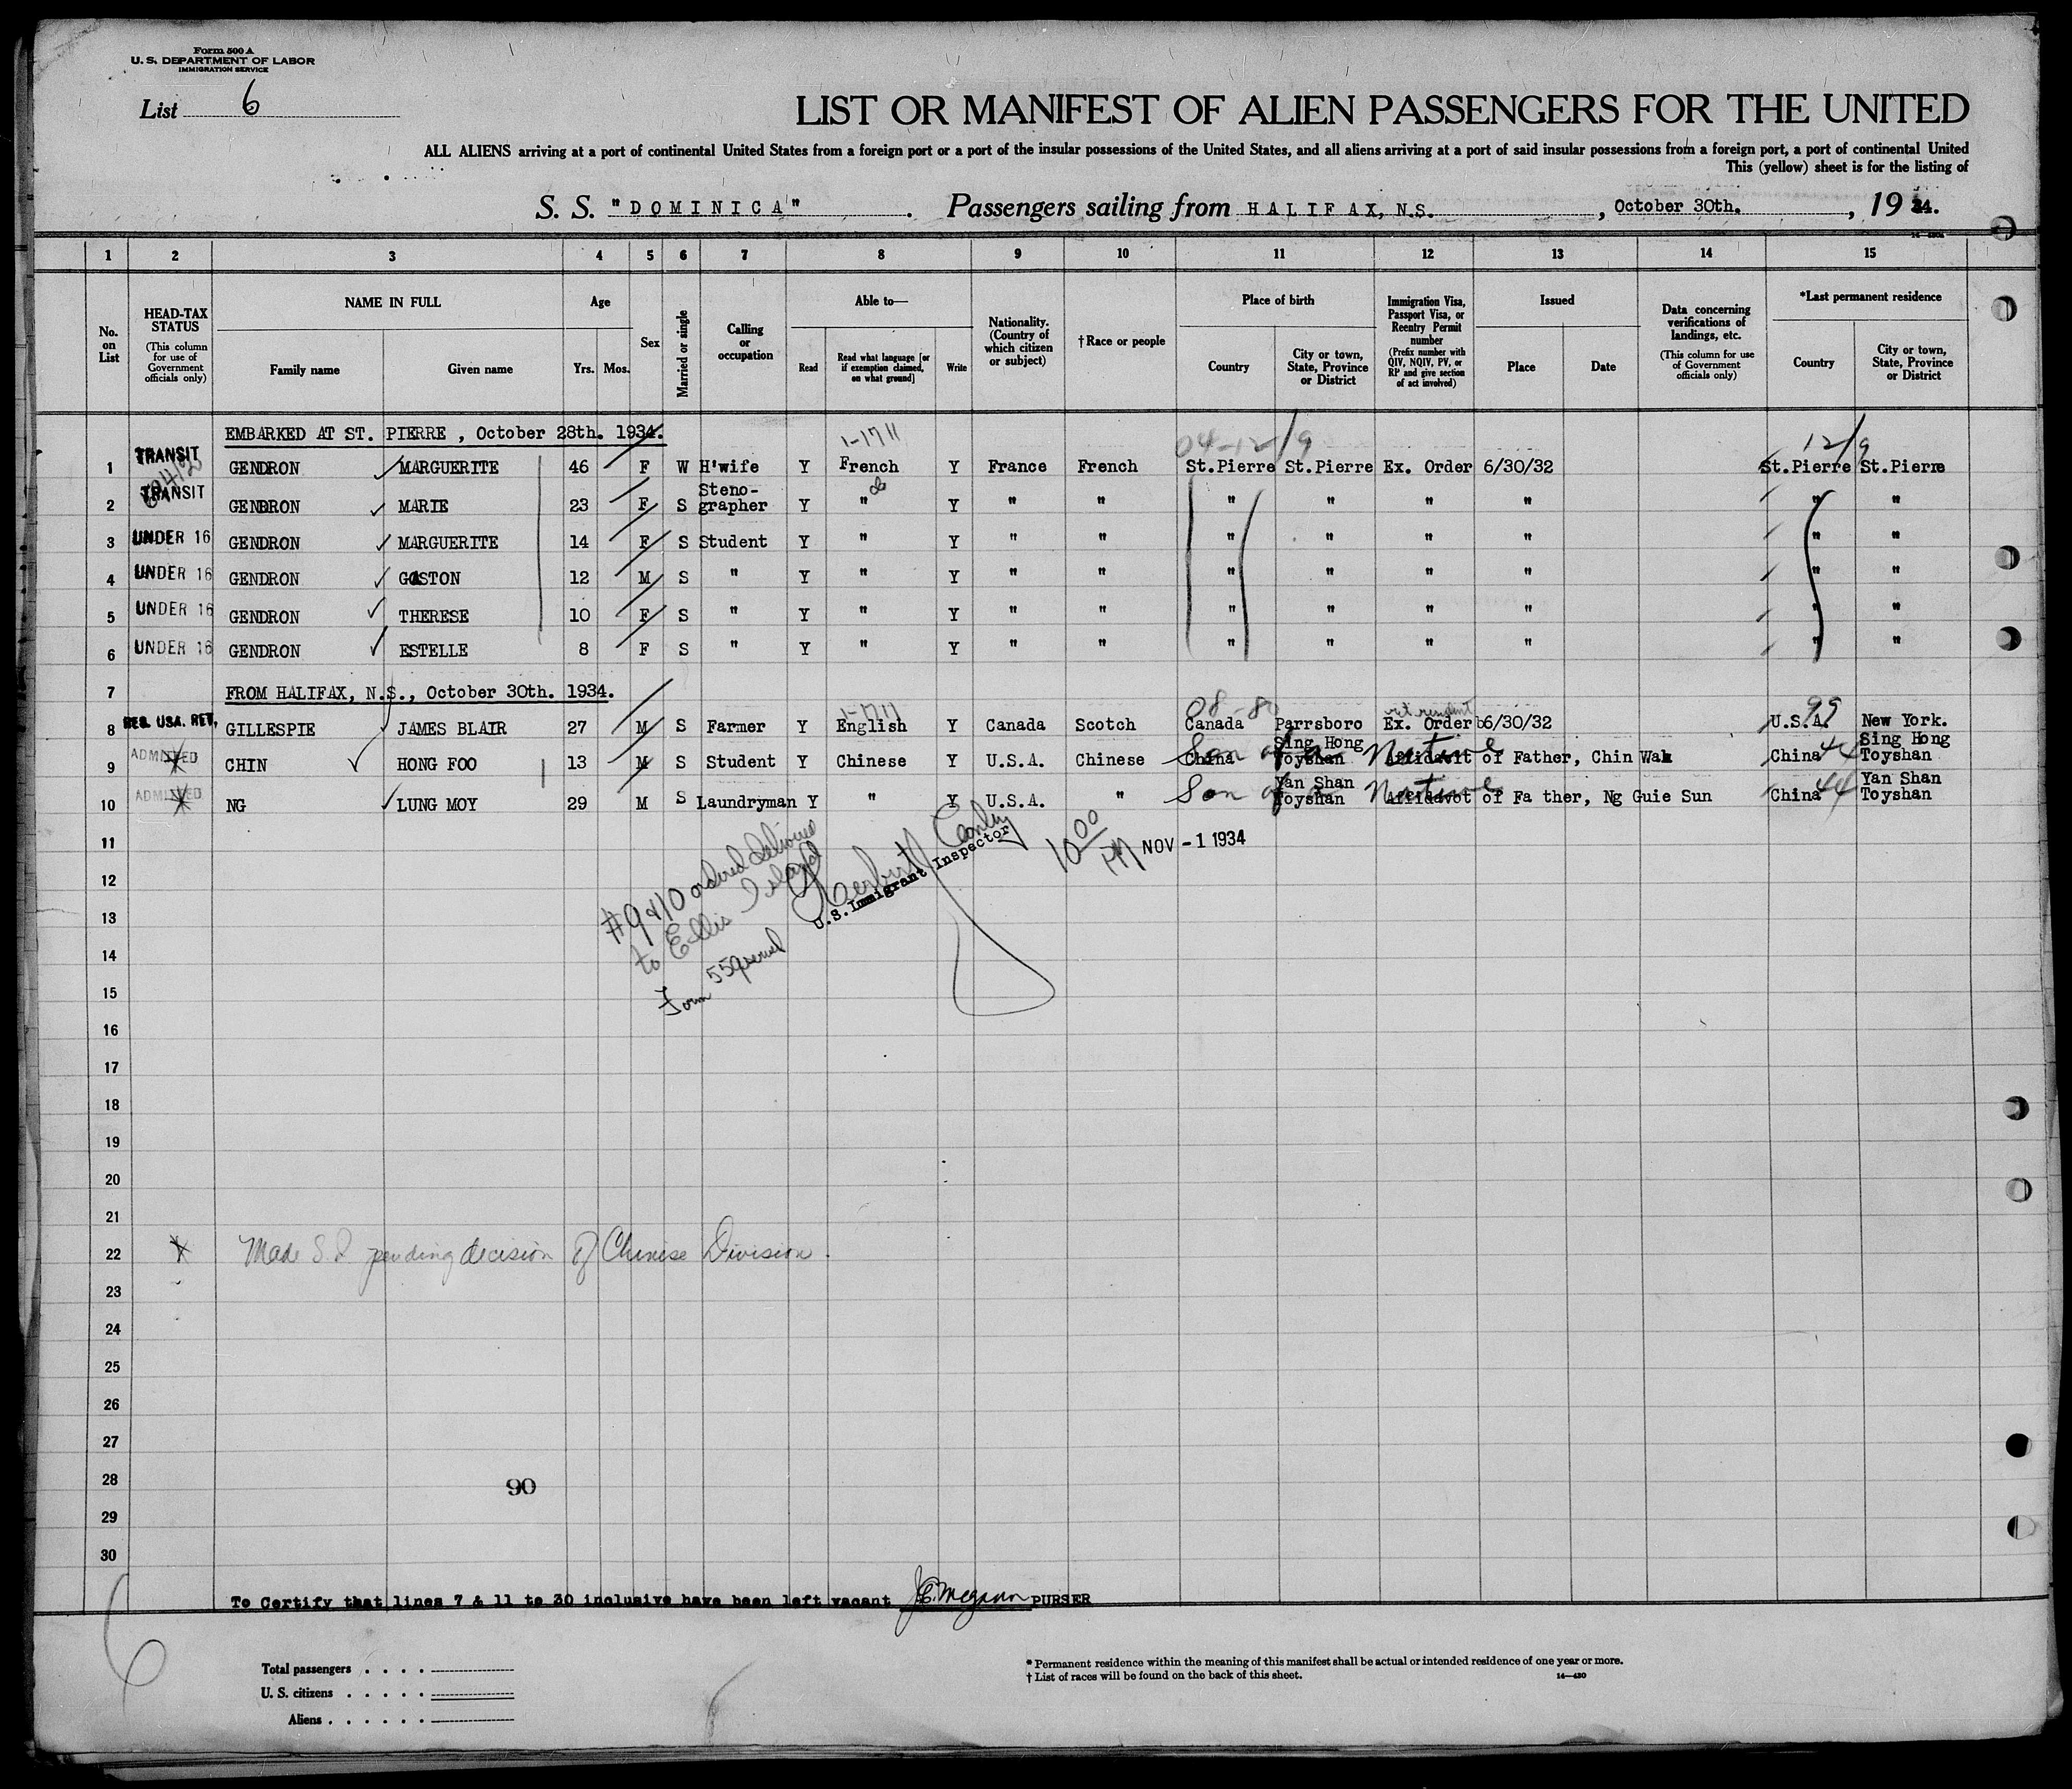 Form 500 A
U. S. DEPARTMENT OF LABOR
IMMIGRATION SERVICE
List 6
LIST OR MANIFEST OF ALIEN PASSENGERS FOR THE UNITED
ALL ALIENS arriving at a port of continental United States from a foreign port or a port of the insular possessions of the United States, and all aliens arriving at a port of said insular possessions from a foreign port, a port of continental United
This (yellow) sheet is for the listing of
S. S. "DOMINICA" . Passengers sailing from HALIFAX, N.S. , October 30th. , 1934.
1 2 3 4 5 6 7 8 9 10 11 12 13 14 15
No. on List
HEAD-TAX STATUS (This column for use of Government officials only)
NAME IN FULL
Family name Given name
Age
Yrs. Mos.
Sex
Married or single
Calling or occupation
Able to—
Read Read what language [or if exemption claimed, on what ground] Write
Nationality. (Country of which citizen or subject)
†Race or people
Place of birth
Country City or town, State, Province or District
Immigration Visa, Passport Visa, or Reentry Permit number (Prefix number with QIV, NQIV, PV, or RP and give section of act involved)
Issued
Place Date
Data concerning verifications of landings, etc. (This column for use of Government officials only)
*Last permanent residence
Country City or town, State, Province or District
EMBARKED AT ST. PIERRE , October 28th. 1934.
1 TRANSIT GENDRON MARGUERITE 46 F W H'wife Y French Y France French St.Pierre St.Pierre Ex. Order 6/30/32 St.Pierre St.Pierre
2 TRANSIT GENDRON MARIE 23 F S Steno-grapher Y " Y " " " " " " " "
3 UNDER 16 GENDRON MARGUERITE 14 F S Student Y " Y " " " " " " " "
4 UNDER 16 GENDRON GASTON 12 M S " Y " Y " " " " " " " "
5 UNDER 16 GENDRON THERESE 10 F S " Y " Y " " " " " " " "
6 UNDER 16 GENDRON ESTELLE 8 F S " Y " Y " " " " " " " "
7 FROM HALIFAX, N.S., October 30th. 1934.
8 RES. USA. RET. GILLESPIE JAMES BLAIR 27 M S Farmer Y English Y Canada Scotch Canada Parrsboro Ex. Order 6/30/32 U.S.A. 99 New York.
9 ADMITTED CHIN HONG FOO 13 M S Student Y Chinese Y U.S.A. Chinese China Sing Hong Toyshan Son of a Native Affidavit of Father, Chin Wah China 44 Sing Hong Toyshan
10 ADMITTED NG LUNG MOY 29 M S Laundryman Y " Y U.S.A. " Son of a Native Yan Shan Toyshan Affidavot of Fa ther, Ng Guie Sun China 44 Yan Shan Toyshan
11
NOV - 1 1934
#9 & 10 ordered delivered
to Ellis Island
Form 559 served
Herbert Conley
U.S. Immigrant Inspector
10 00
12
13
14
15
16
17
18
19
20
21
22 Made S.I. pending decision of Chinese Division.
23
24
25
26
27
28 90
29
30
To Certify that lines 7 & 11 to 30 inclusive have been left vacant PURSER
6
Total passengers . . . .
U. S. citizens . . . . .
Aliens . . . . . .
* Permanent residence within the meaning of this manifest shall be actual or intended residence of one year or more.
† List of races will be found on the back of this sheet.
14—430